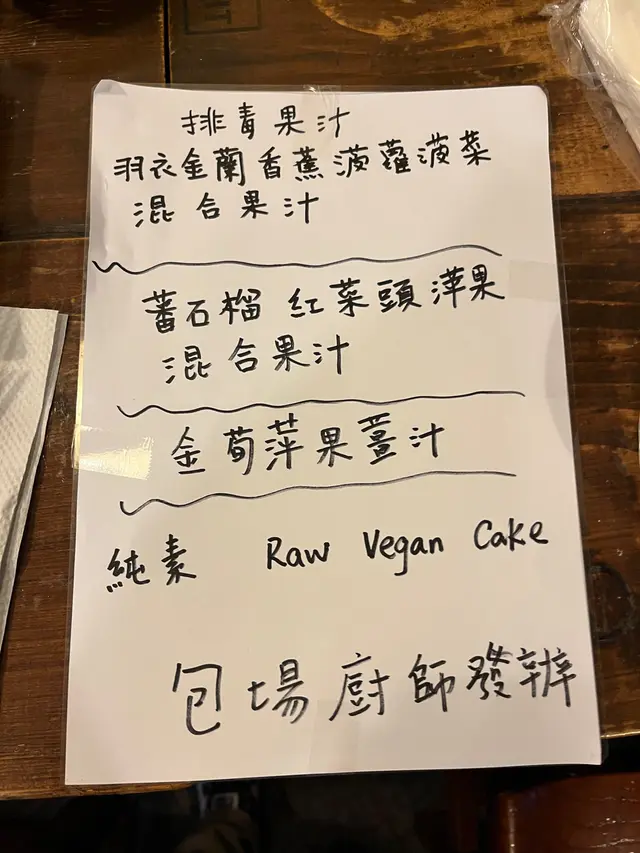 排毒果汁
羽衣金蘭香蕉菠蘿菠菜
混合果汁
蕃石榴 紅菜頭萍果
混合果汁
金荀萍果薑汁
純素 Raw Vegan Cake
包場廚師發辦